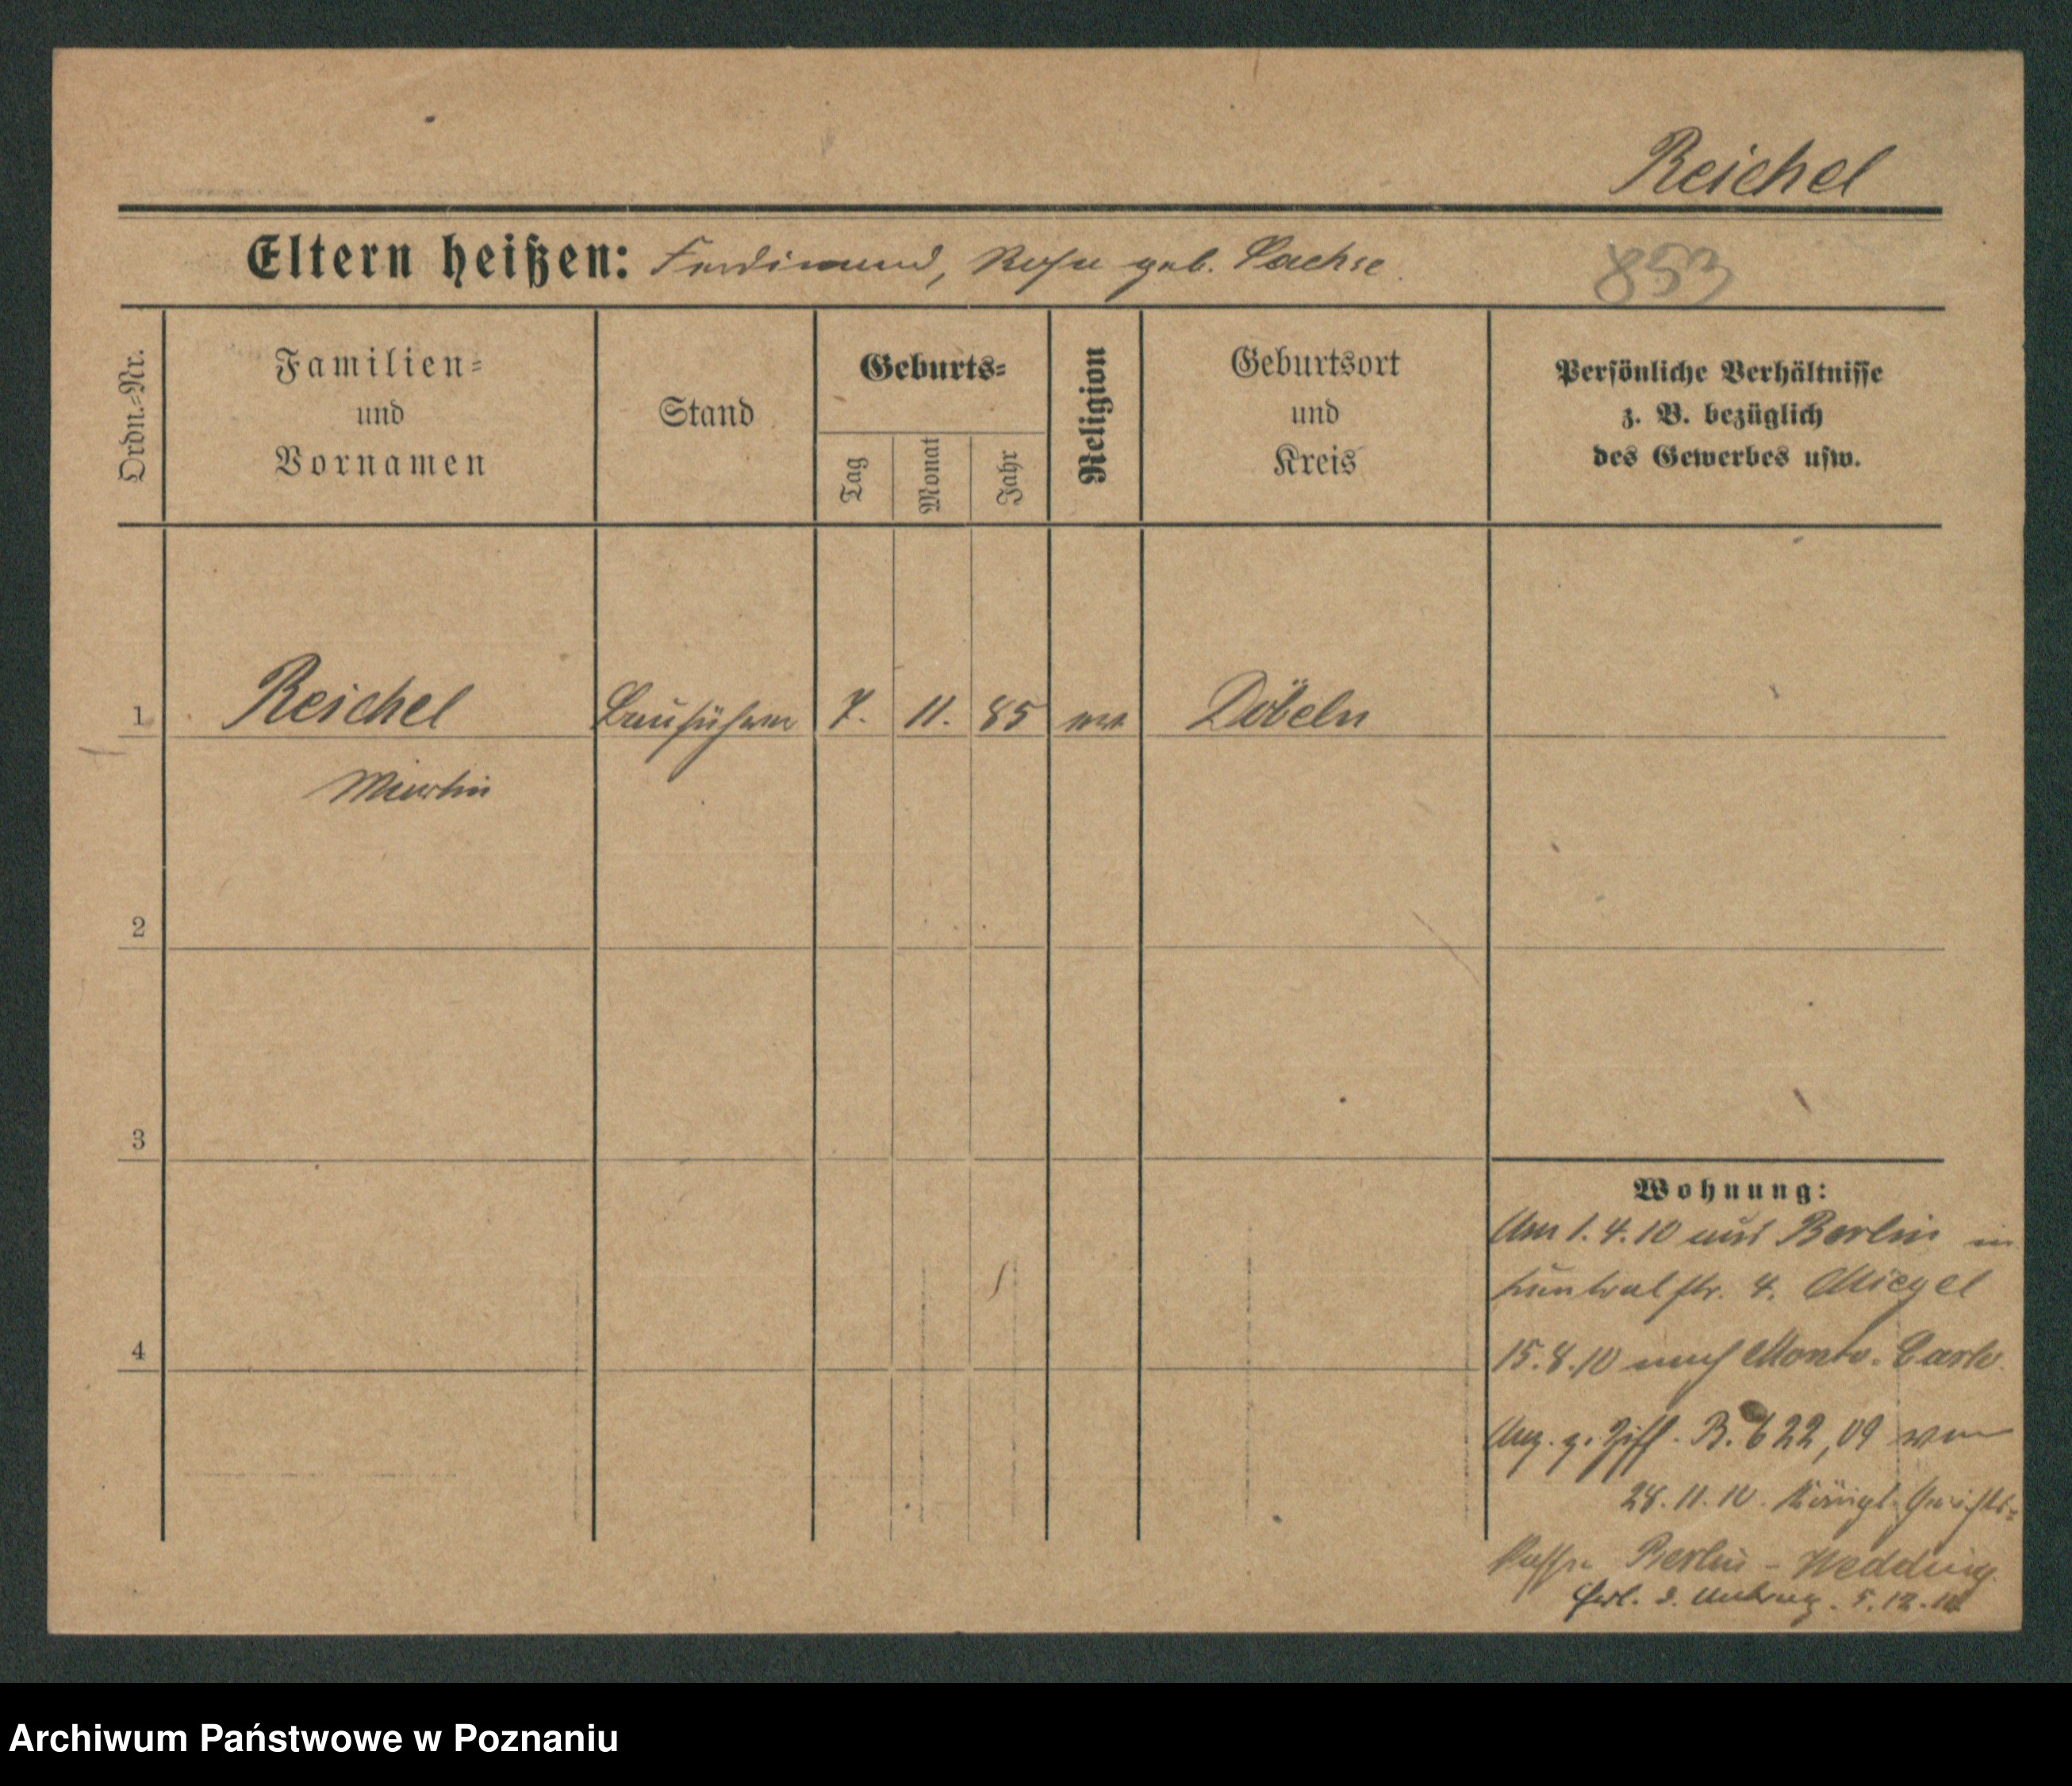 Reichel
Eltern heißen: Ferdinand, Rosa geb. Sachse.
853
Ordn.=Nr.
Familien=
und
Vornamen
Stand
Geburts=
Tag
Monat
Jahr
Religion
Geburtsort
und
Kreis
Persönliche Verhältnisse
z. B. bezüglich
des Gewerbes usw.
1 Reichel Bauführer 7. 11. 85 Döbeln
Martin
2
3
4
Wohnung:
Am 1. 4. 10 aus Berlin in
str. 4. Miegel
15. 8. 10 nach Monte-Carlo.
Anz. z. Ziff. B. 622, 09 vom
28. 11. 10. Königl. Gerichts=
Kasse Berlin - Wedding.
Erl. d. Antrag. 5. 12. 10
Archiwum Państwowe w Poznaniu